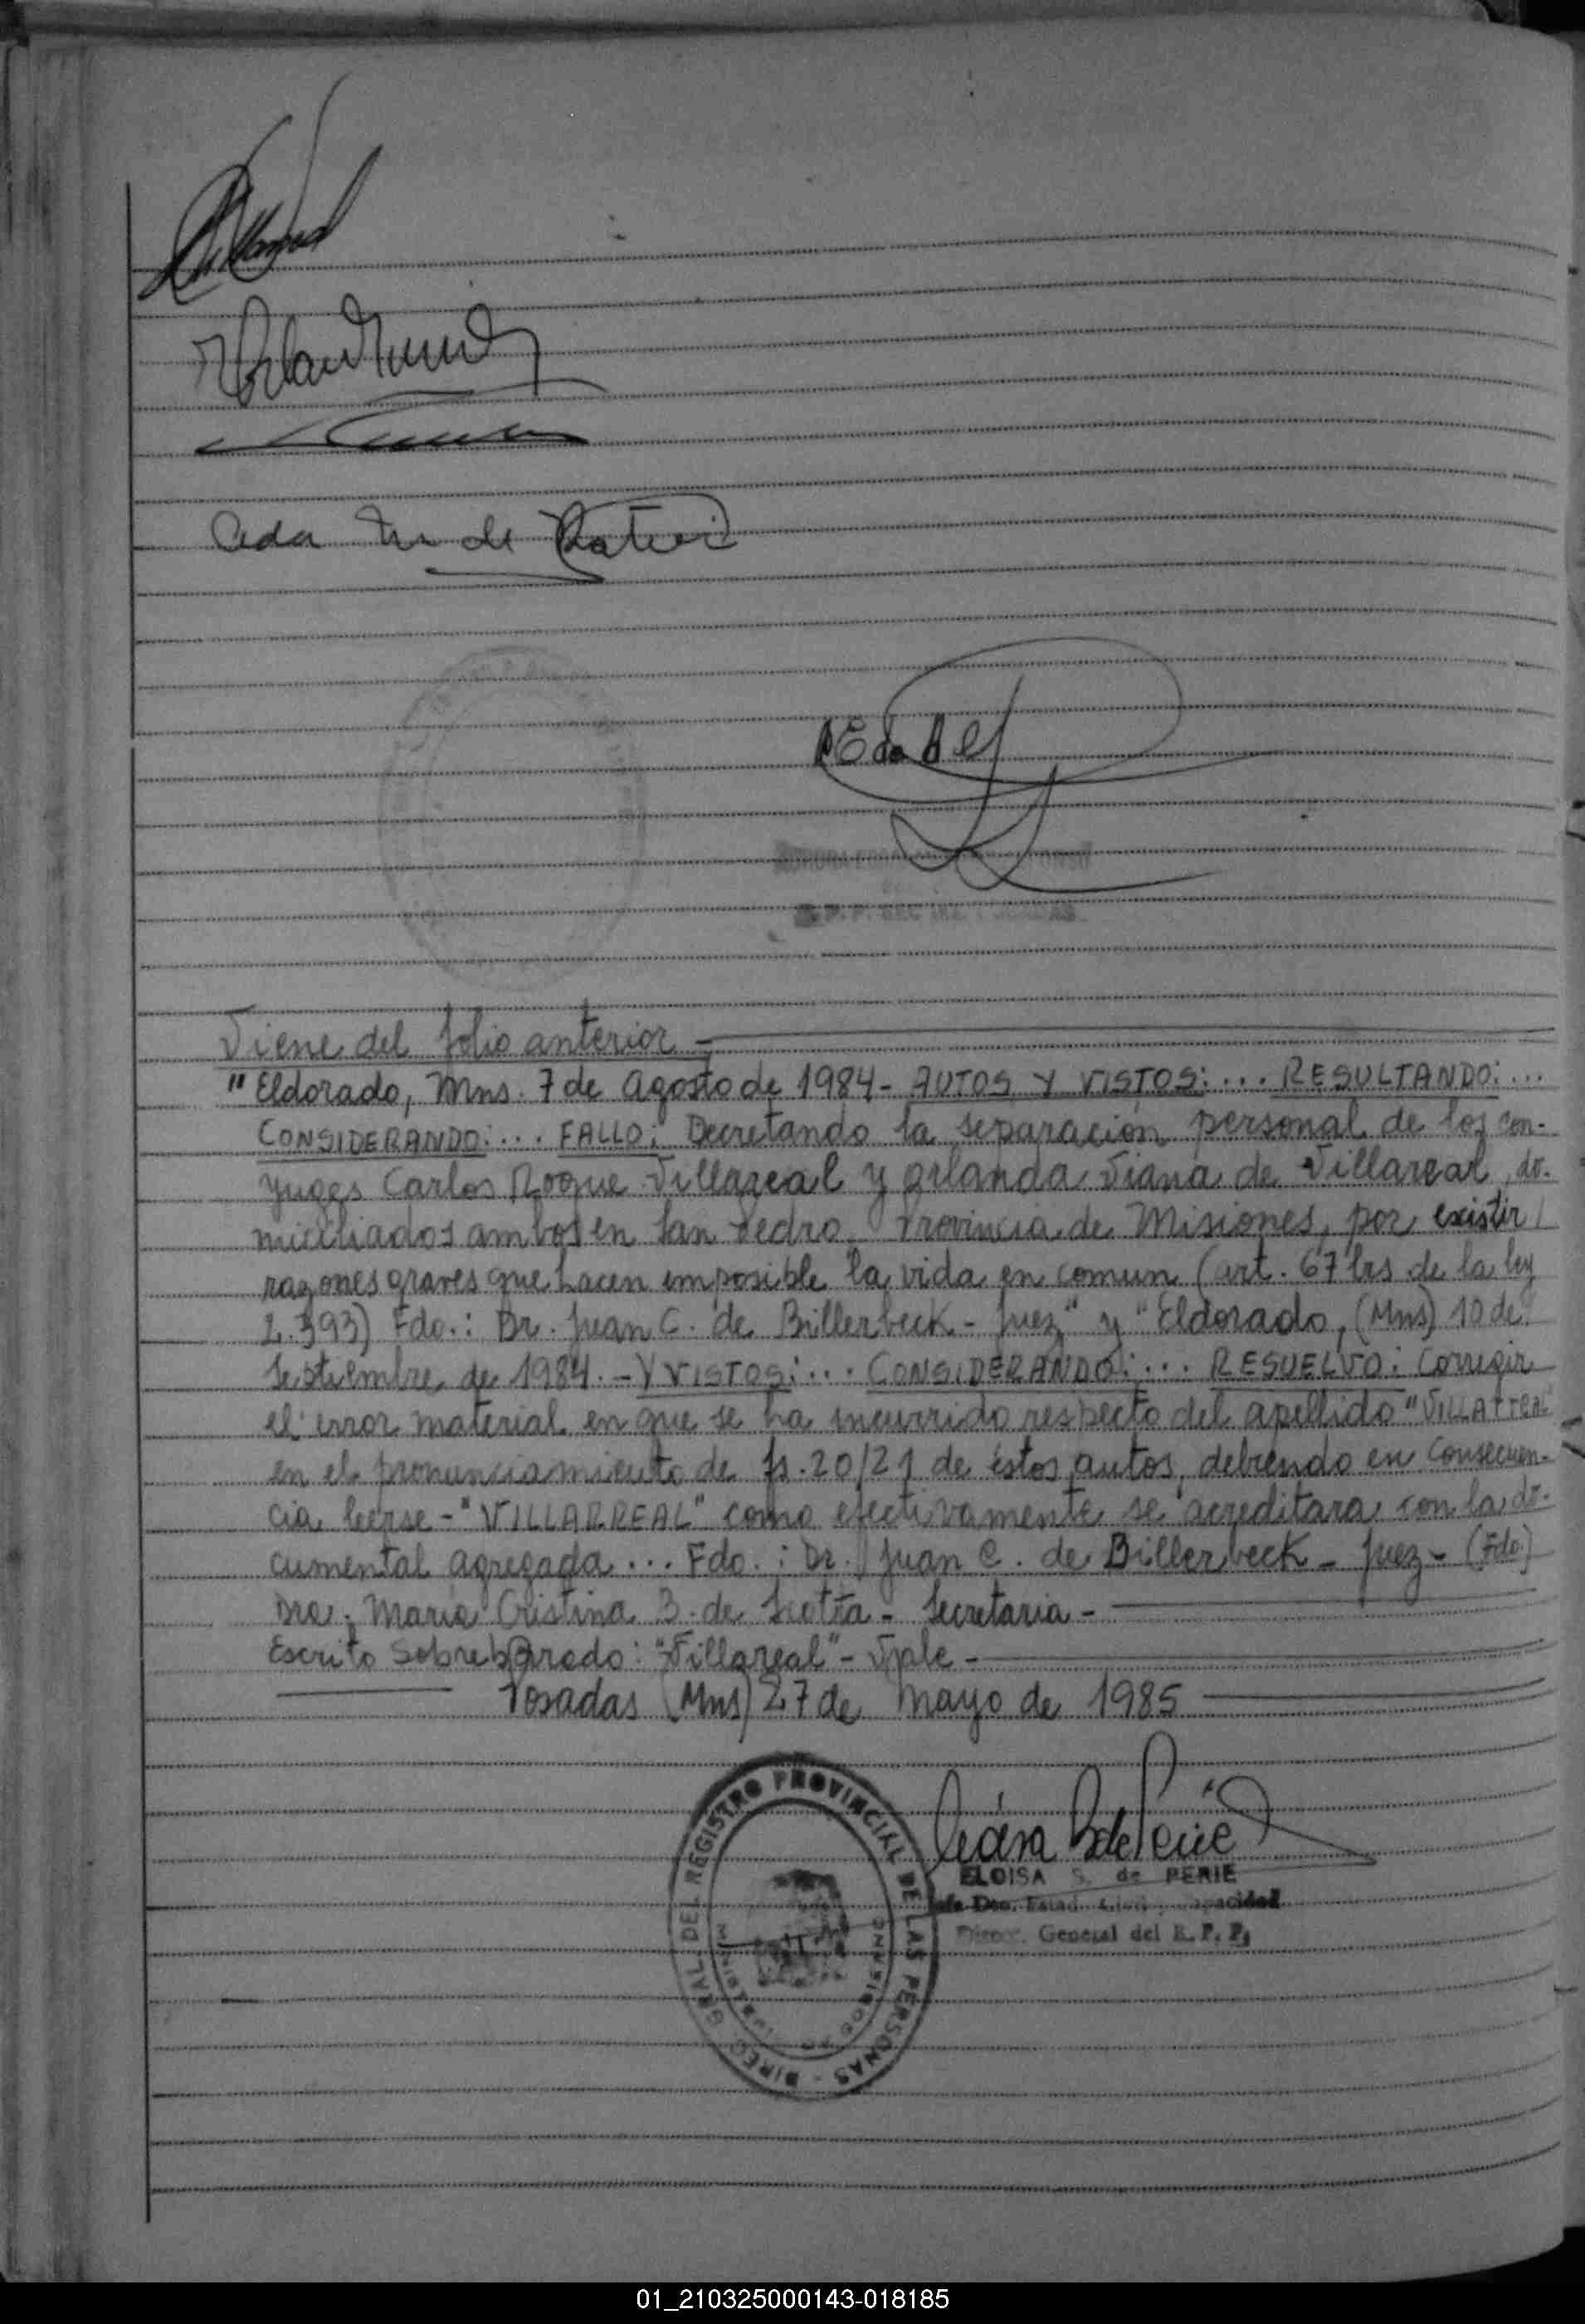 Viene del folio anterior -
"Eldorado, Mns. 7 de Agosto de 1984 - AUTOS Y VISTOS: ... RESULTANDO: ...
CONSIDERANDO: ... FALLO: Decretando la separación personal de los con-
yuges Carlos Roque Villareal y Orlanda Viana de Villareal, do-
miciliados ambos en San Pedro, Provincia de Misiones, por existir
razones graves que hacen imposible la vida en comun (art. 67 bis de la ley
2.393) Fdo.: Dr. Juan C. de Billerbeck - Juez" y "Eldorado, (Mns) 10 de
Septiembre de 1984. - Y VISTOS: ... CONSIDERANDO: ... RESUELVO: Corregir
el error material en que se ha incurrido respecto del apellido "VILLAREAL"
en el pronunciamiento de fs. 20/21 de éstos autos, debiendo en consecuen-
cia leerse - "VILLARREAL" como efectivamente se acreditara con la do-
cumental agregada ... Fdo.: Dr. Juan C. de Billerbeck - Juez - (Fdo)
Dra. María Cristina B. de Scotta - Secretaria -
Escrito Sobreborrado: "Villareal" - Vale -
Posadas (Mns) 27 de Mayo de 1985
ELOISA S. de PERIE
General del R. P. P.
DIREC. GRAL DEL REGISTRO PROVINCIAL DE LAS PERSONAS
01_210325000143-018185